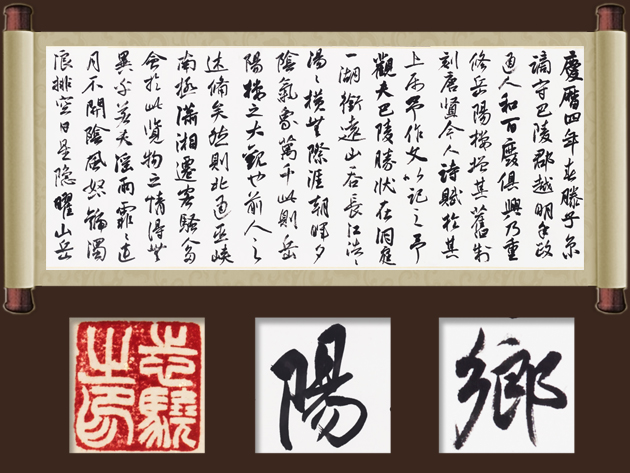 慶曆四年春滕子京
謫守巴陵郡越明年政
通人和百廢俱興乃重
修岳陽樓增其舊制
刻唐賢今人詩賦於其
上屬予作文以記之予
觀夫巴陵勝狀在洞庭
一湖銜遠山吞長江浩〻
湯〻橫無際涯朝暉夕
陰氣象萬千此則岳
陽樓之大觀也前人之
述備矣然則北通巫峽
南極瀟湘遷客騷人多
會於此覽物之情得無
異乎若夫淫雨霏〻連
月不開陰風怒號濁
浪排空日星隱曜山岳
志驍之印
陽
鄉